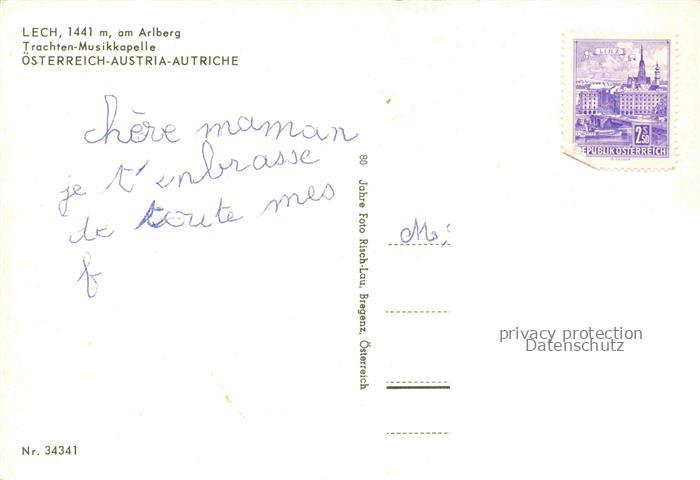 LECH, 1441 m, am Arlberg
Trachten-Musikkapelle
ÖSTERREICH-AUSTRIA-AUTRICHE
chère maman
je t'enbrasse
de toute mes
f
80 Jahre Foto Risch-Lau, Bregenz, Österreich
LINZ
2.50 S
REPUBLIK ÖSTERREICH
M
privacy protection
Datenschutz
Nr. 34341